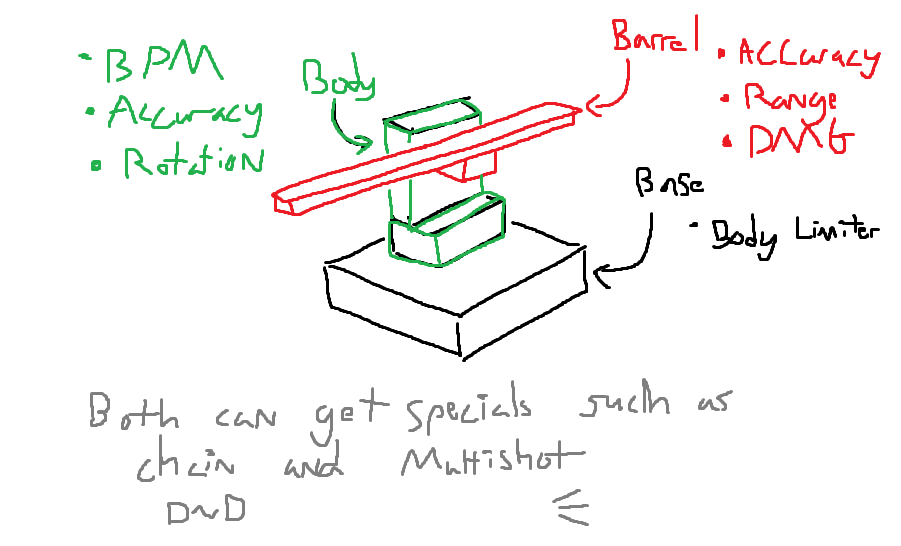 Body
• BPM
• Accuracy
• Rotation
Barrel
• Accuracy
• Range
• DMG
Base
• Body Limiter
Both can get specials such as
chain and Multishot